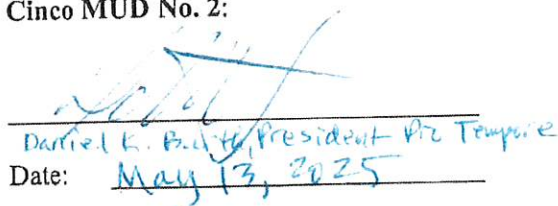 Cinco MUD No. 2:
Daniel K. President Pro Tempore
Date: May 13, 2025